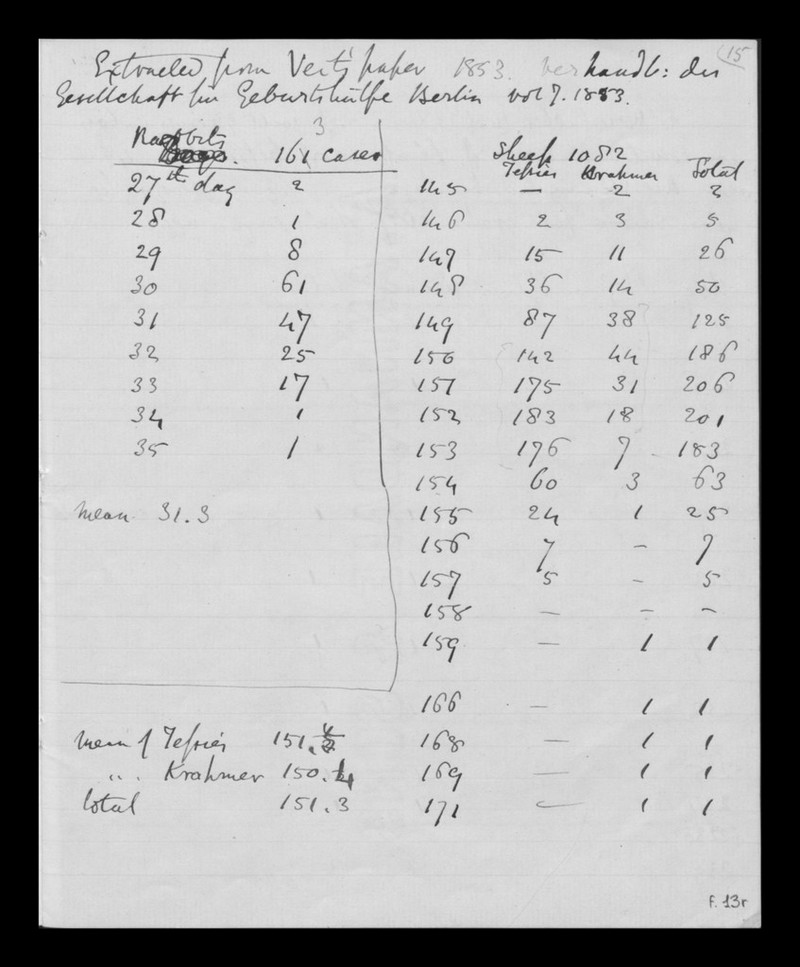 15
Extracted from Veit's paper 1853. Verhandl: der
Gesellschaft für Geburtshülfe Berlin vol 7. 1853.
3
Rabbits. 161 cases
27th day 2
28 1
29 8
30 61
31 47
32 25
33 17
34 1
35 1
mean 31.3
Sheep 1082
Tessier Krahmer Total
145 — 2 2
146 2 3 5
147 15 11 26
148 36 14 50
149 87 38 125
150 142 44 186
151 175 31 206
152 183 18 201
153 176 7 183
154 60 3 63
155 24 1 25
156 7 – 7
157 5 – 5
158 — – –
159 — 1 1
166 — 1 1
168 — 1 1
169 — 1 1
171 — 1 1
mean of Tessier 151.
" . Krahmer 150.
total 151.3
F. 13r